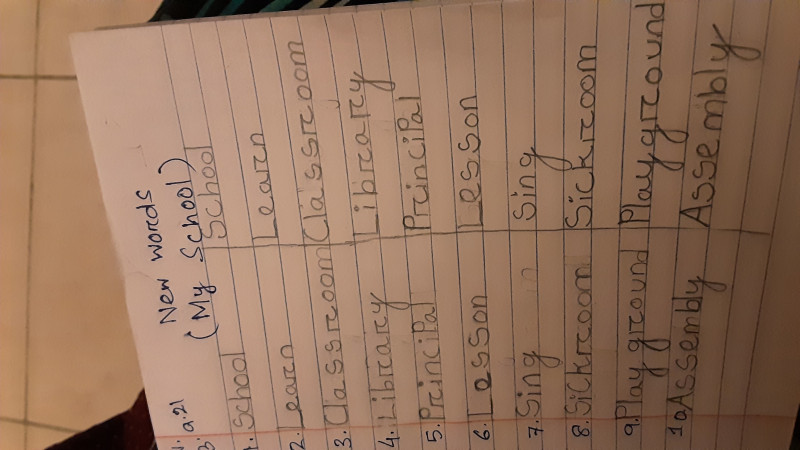 New words
(My School)
1. School School
2. Learn Learn
3. Classroom Classroom
4. Library Library
5. Principal Principal
6. Lesson Lesson
7. Sing Sing
8. Sickroom Sickroom
9. Playground Playground
10 Assembly Assembly